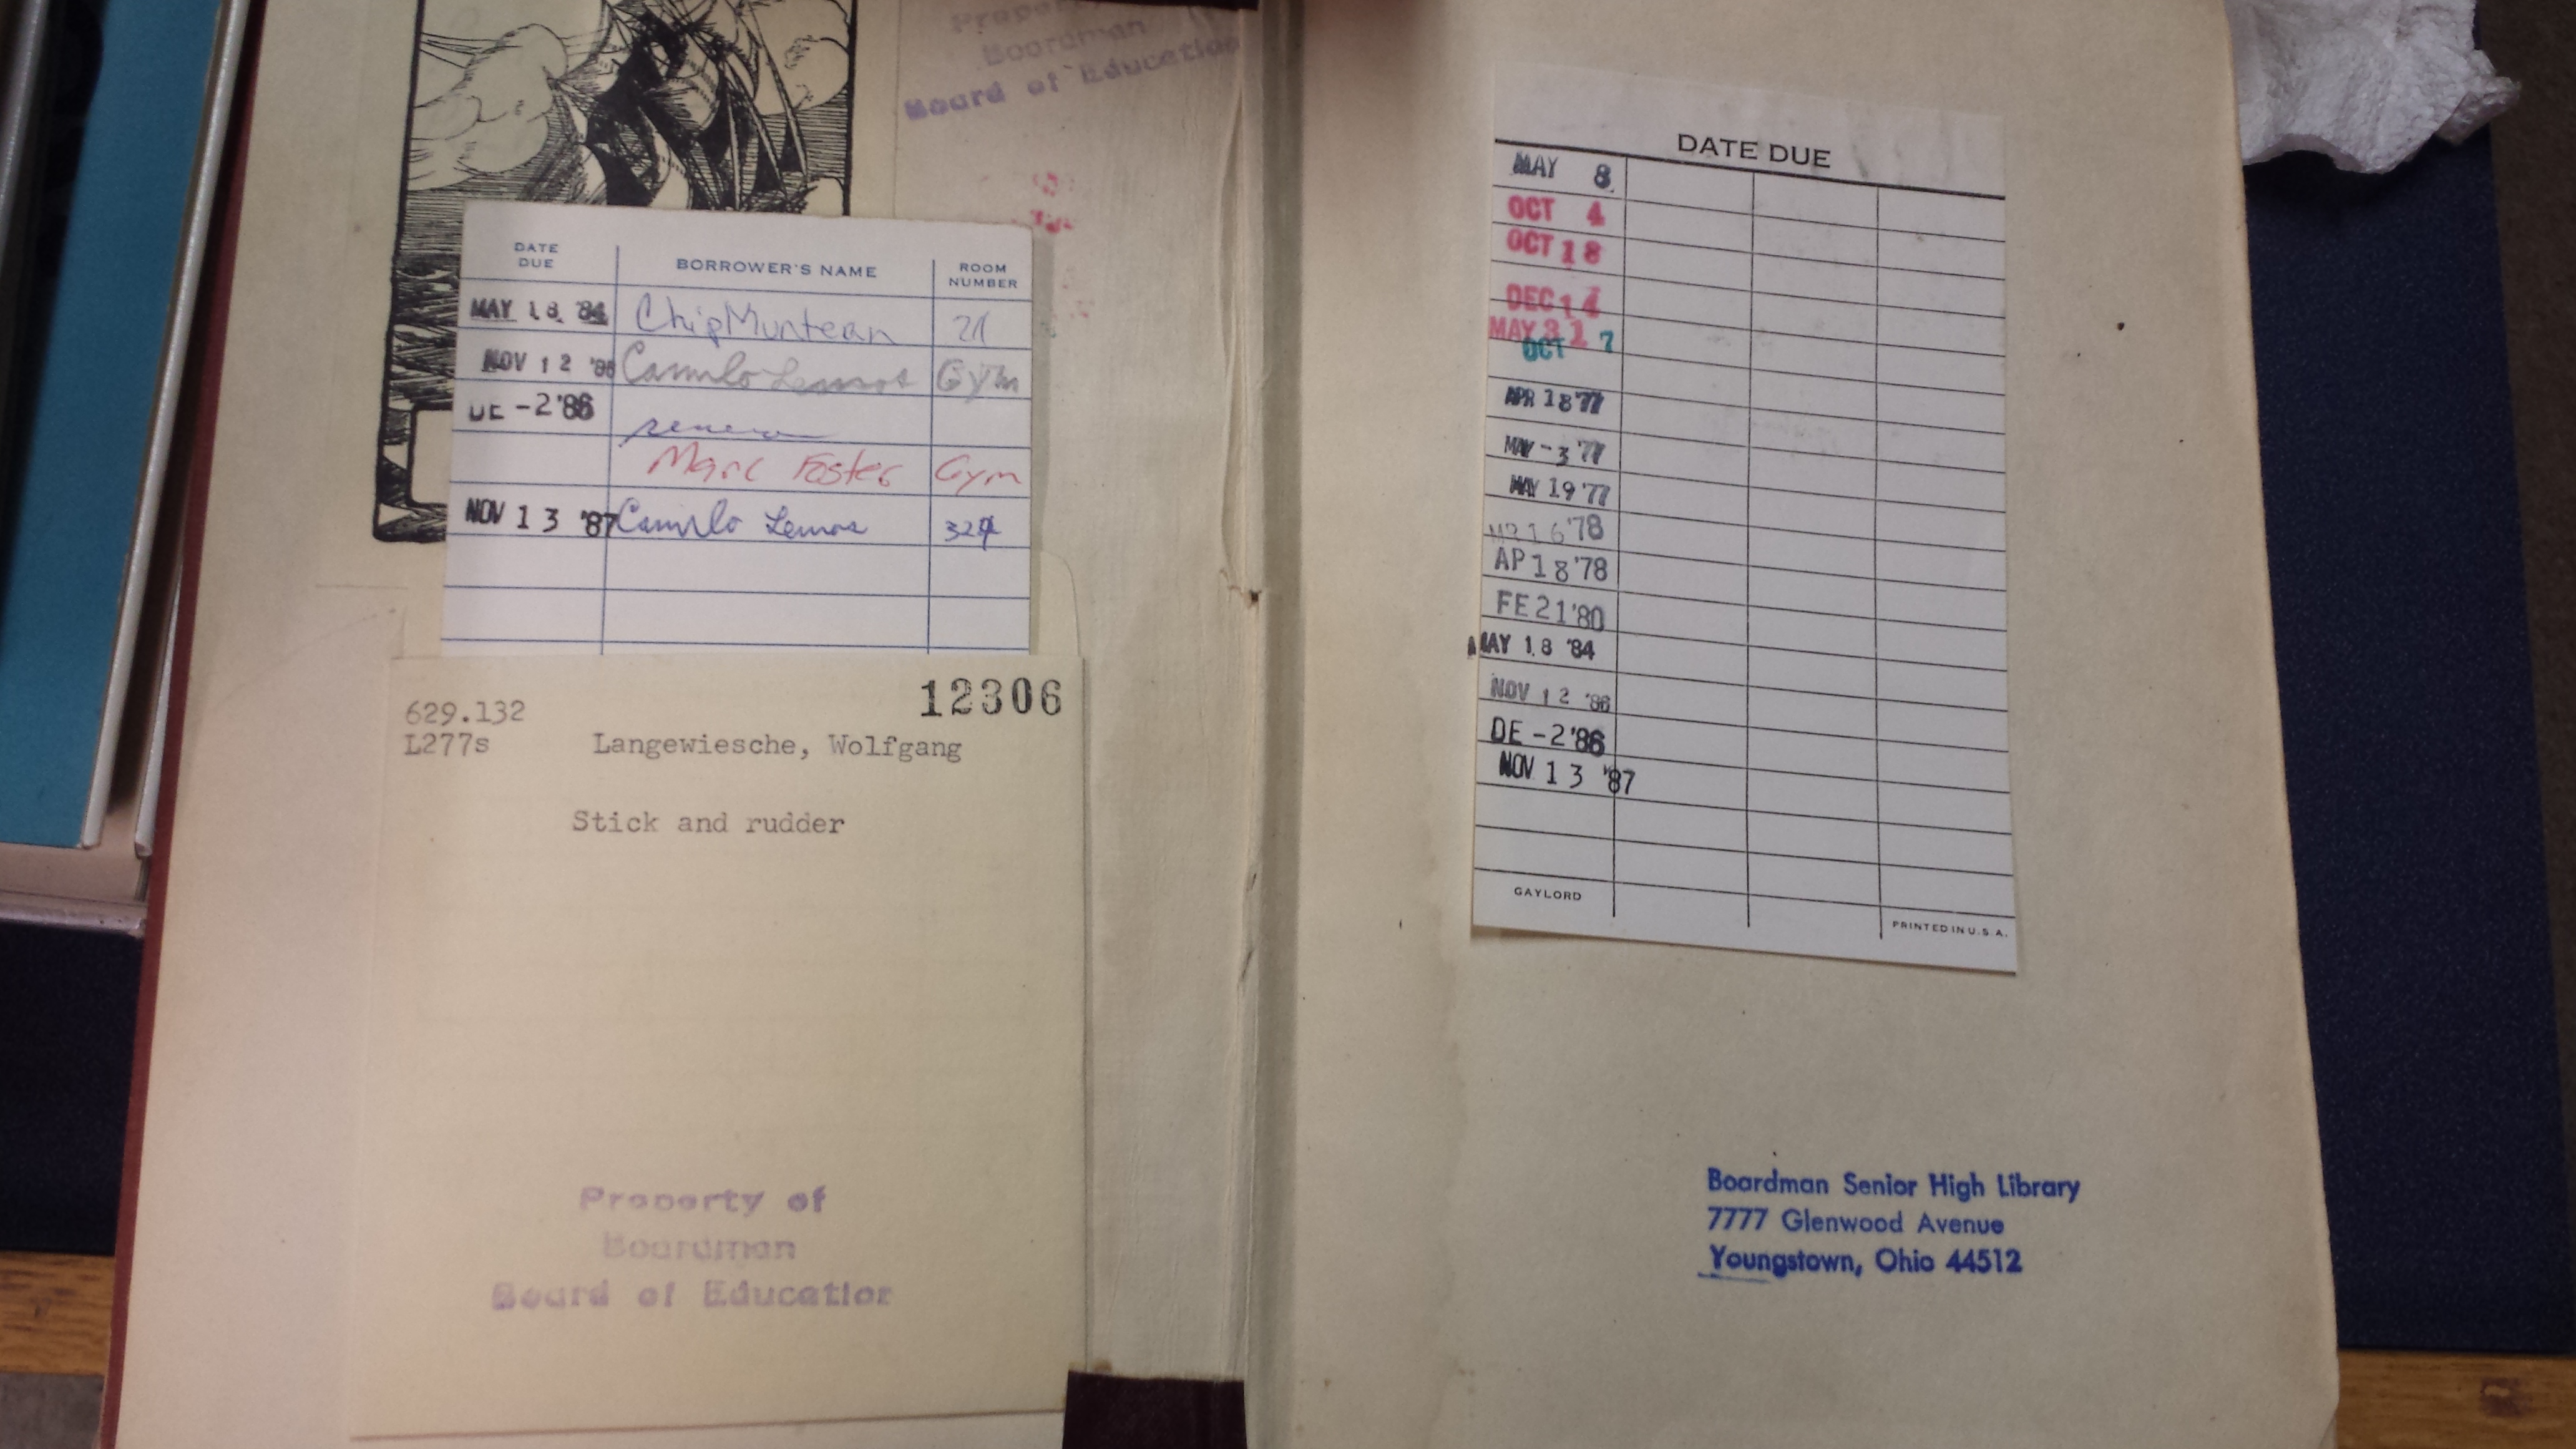 Boardman
Board of Education
DATE DUE BORROWER'S NAME ROOM NUMBER
MAY 18 '84 Chip Muntean 21
NOV 12 '86 Camilo Lemos Gym
DE -2 '86
Marc Foster Gym
NOV 13 '87 Camilo Lemos 324
12306
629.132
L277s Langewiesche, Wolfgang
Stick and rudder
Property of
Boardman
Board of Education
DATE DUE
MAY 8
OCT 4
OCT 18
DEC 14
MAY 31
OCT 7
APR 18 '77
MAY -3 '77
MAY 19 '77
16 '78
AP 18 '78
FE 21 '80
MAY 18 '84
NOV 12 '86
DE -2 '86
NOV 13 '87
GAYLORD
PRINTED IN U.S.A.
Boardman Senior High Library
7777 Glenwood Avenue
Youngstown, Ohio 44512